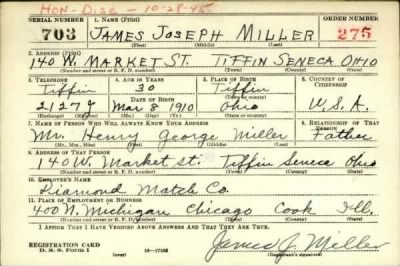 HON-Disc - 10-28-45
SERIAL NUMBER 1. NAME (Print) ORDER NUMBER
703 JAMES JOSEPH MILLER 275
(First) (Middle) (Last)
2. ADDRESS (Print)
140 W. MARKET ST. TIFFIN SENECA OHIO
(Number and street or R. F. D. number) (Town) (County) (State)
3. TELEPHONE 4. AGE IN YEARS 5. PLACE OF BIRTH 6. COUNTRY OF CITIZENSHIP
Tiffin 30 Tiffin
DATE OF BIRTH
Mar 8 1910 Ohio U.S.A.
(Exchange) (Number) (Mo.) (Day) (Yr.) (State or country)
7. NAME OF PERSON WHO WILL ALWAYS KNOW YOUR ADDRESS 8. RELATIONSHIP OF THAT PERSON
Mr. Henry George Miller Father
(Mr., Mrs., Miss) (First) (Middle) (Last)
9. ADDRESS OF THAT PERSON
140 W. Market st. Tiffin Seneca Ohio
(Number and street or R. F. D. number) (Town) (County) (State)
10. EMPLOYER'S NAME
Diamond Match Co.
11. PLACE OF EMPLOYMENT OR BUSINESS
400 N. Michigan Chicago Cook Ill.
(Number and street or R. F. D. number) (Town) (County) (State)
I AFFIRM THAT I HAVE VERIFIED ABOVE ANSWERS AND THAT THEY ARE TRUE.
REGISTRATION CARD
D. S. S. Form 1
James J. Miller
(Registrant's signature)